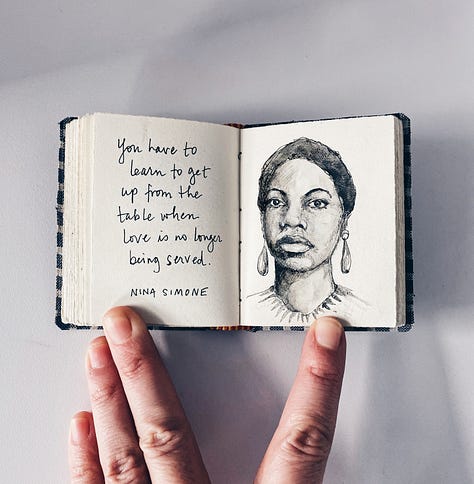 You have to
learn to get
up from the
table when
love is no longer
being served.
NINA SIMONE